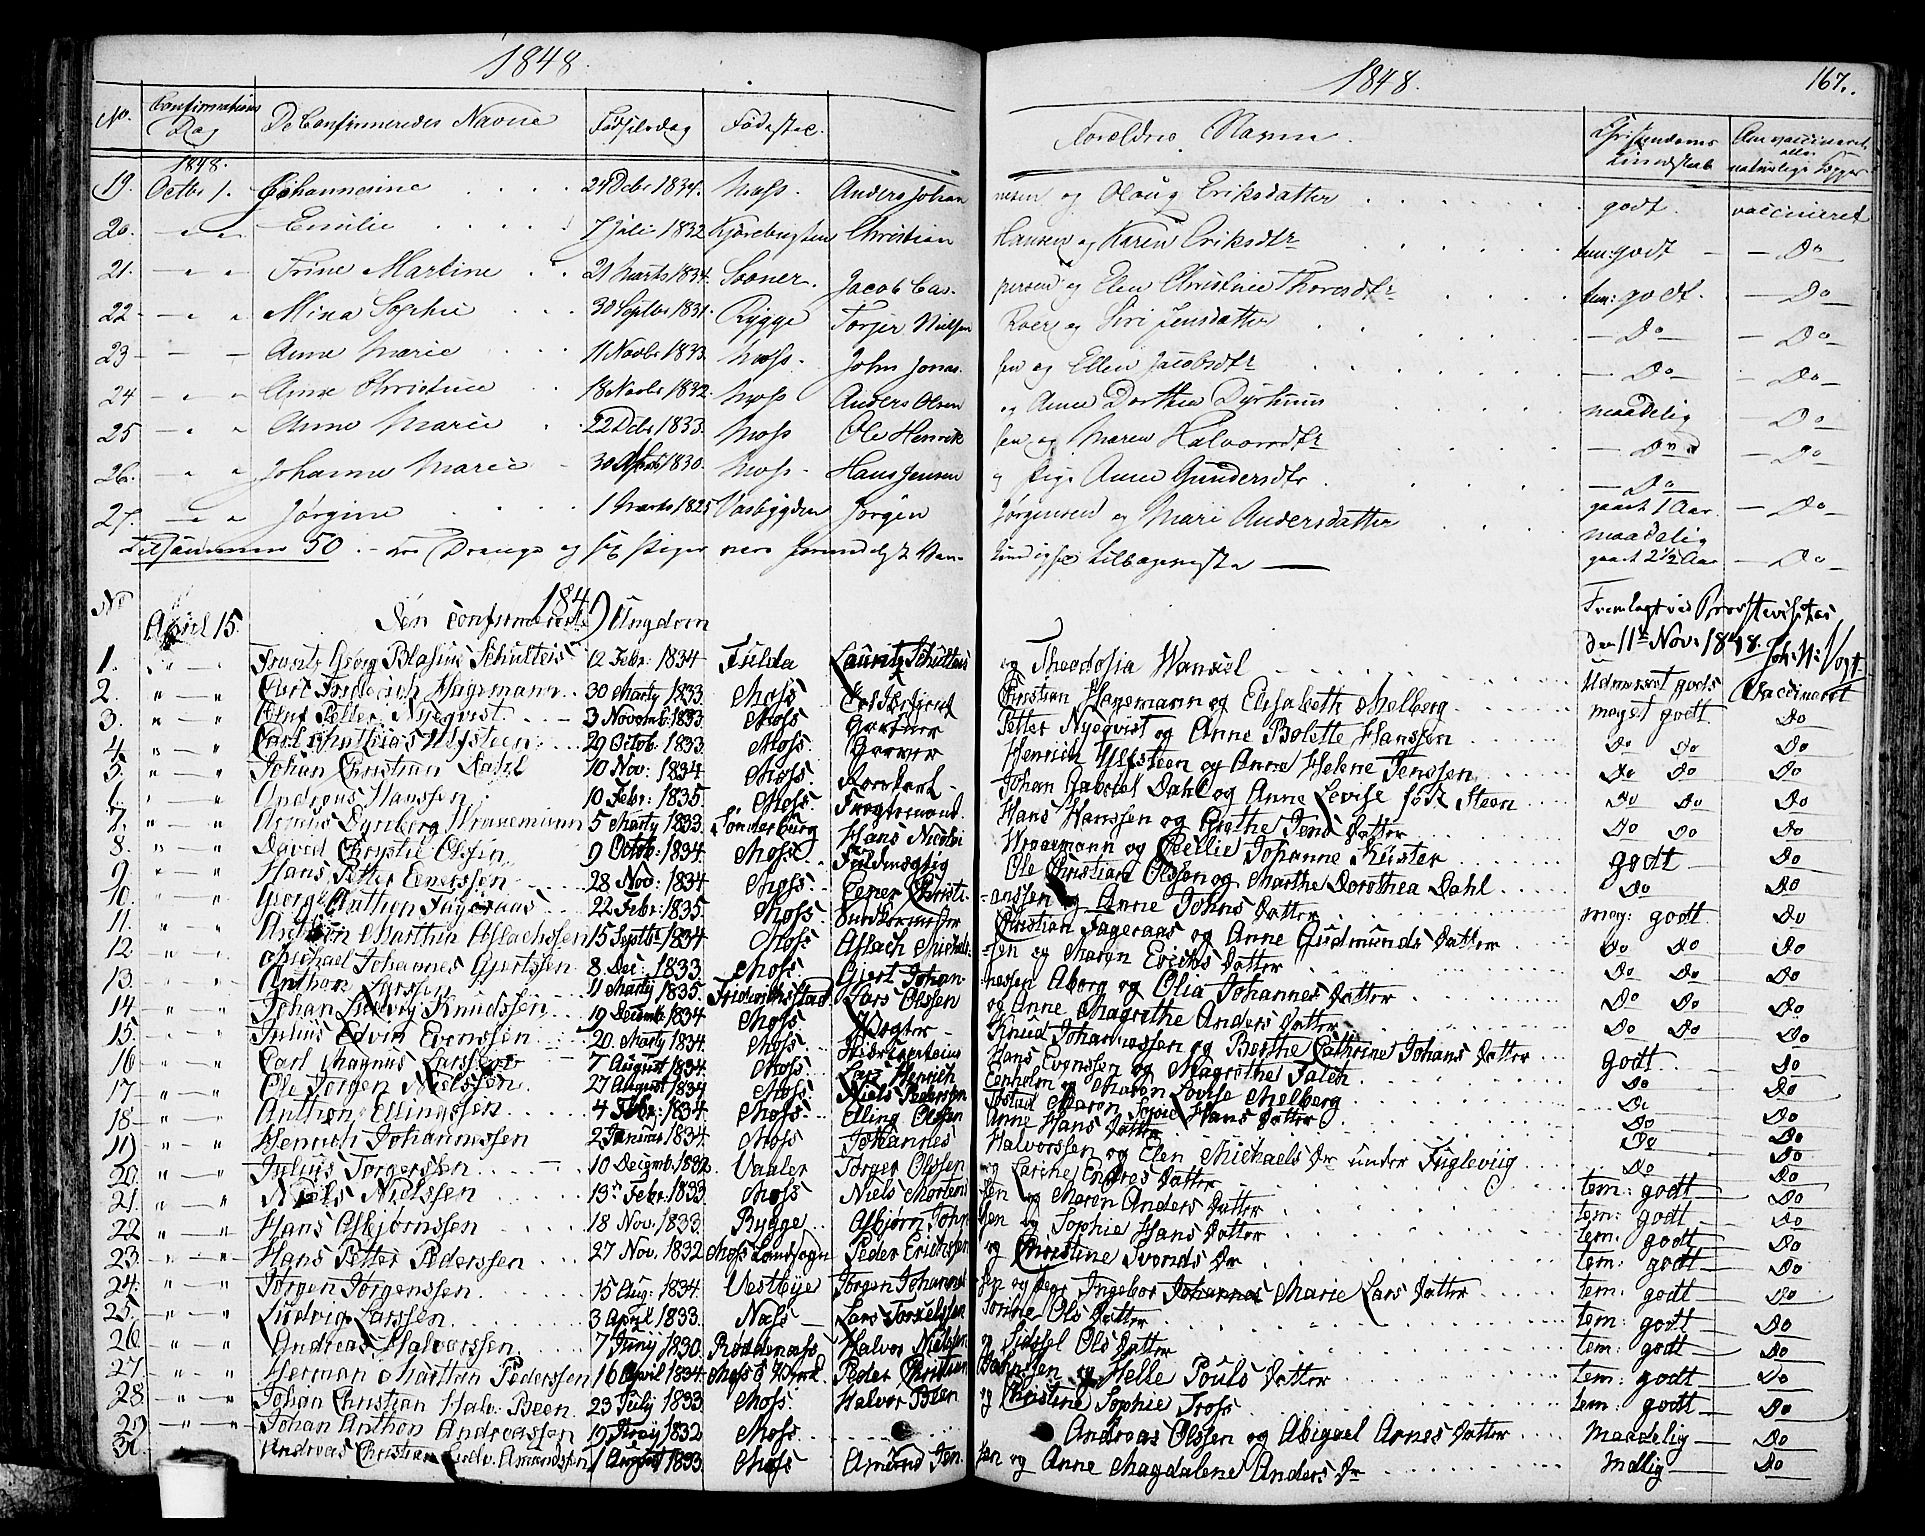 1848.
1848.
167.
No. Confirmations Dag De Confirmeredes Navne Fødselsdag Fødested. Forældres Navne Christendoms Kundskab Om vaccineret eller naturlige Kopper
1848.
19. Octbr 1. Johannesine 24 Dcbr 1834. Moss. Anders Johan nesen og Olaug Eriksdatter godt. vaccineret
20. " " Emilie 7 Juli 1832 Christian Hansen og Karen Eriksdtr tem: godt Do
21. " " Trine Martine 21 Marts 1834. Sooner. Jacob Cas. persen og Elen Christine Thoresdtr tem: godt. Do
22 " " Mina Sophie 30 Septbr 1831. Rygge Torjer Nielsen og Siri Jensdatter Do Do
23 Anne Marie 11 Novbr 1833. Moss. John Jonas. sen og Ellen Jacobsdtr Do Do
24 " " Anne Christine 18 Novbr 1832. Moss Anders Olsen og Anne Dorthea maadelig Do
25 " " Anne Marie 22 Dcbr 1833. Moss Ole Henrik sen og Maren Halvorsdtr Do Do
26. " " Johanne Marie 30 1830. Moss. Hans Jensen og Pige Anne Gundersdtr Do gaaet 1 Aar. Do
27. " " Jørgine 1 Marts 1825 Jørgen Jørgensen og Mari Andersdatter maadelig gaaet 2½ Aar Do
Tilsammen 50. Drenge og Piger
No 1849 Den confirmerede Ungdom Fremlagt ved Provstevisitas
April 15. den 11te Nov: 1848. Joh. N: Vogt
1. Frantz Georg Blasius Schulteis 12 Febr: 1834 Fulda Lauritz Schulteis og Theodosia Wansel Udmærket godt Vaccineret
2. " " Carl Friderich Hagemann 30 Marty 1833. Moss Christian Hagemann og Elisabeth Melberg meget godt Do
3. " " Petter Nyeqvist 3 Novemb: 1833 Moss. Gartner Petter Nyeqvist og Anne Bolette Hanssen Do Do Do
4. " " Carl Mathias Ulfsteen 29 Octob: 1833. Moss. Garver Henrich Ulfsteen og Anne Helene Jenssen Do Do Do
5. " " Johan Christian Dahl 10 Nov: 1834 Moss. Johan Gabriel Dahl og Anne Levise født Steen Do Do Do
6. " " Andreas Hanssen 10 Febr: 1835. Moss. Fragtemand Hans Hanssen og Grethe Jens Datter Do Do Do
7. " " Dyreborg Wranemann 5 Marty 1833. Sønderburg Hans Nicolai Wranemann og Cellie Johanne Küster godt Do
8. " " David Chrystie Olssen 9 Octob: 1834. Moss. Fuldmægtig Ole Christian Olssen og Marthe Dorothea Dahl Do Do
9 " " Hans Petter Enerssen 28 Nov: 1834 Moss. Ener Christi- anssen og Anne Johns Datter meg: godt Do
10. " " Georg Anthon Fageraas 22 Febr: 1835. Moss. Christian Fageraas og Anne Gudmunds Datter Do Do Do
11. " " Anthon Marthin Aslachssen 15 Septbr 1834 Moss Aslach Michel- sen og Maren Erichs Datter Do Do Do
12 " " Michael Johannes Gjertssen 8 Dec: 1833. Moss. Gjert Johan- nessen Aborg og Olia Johannes Datter Do Do Do
13. " " Anthon Larssen 11 Marty 1835. Friderichsstad Lars Olssen og Anne Magrethe Anders Datter Do Do Do
14. " " Johan Ludvig Knudssen 19 Decemb: 1834 Moss Vægter Knud Johannessen og Berthe Cathrine Johans Datter godt Do
15. " " Julius Edvin Evenssen 20 Marty 1834 Moss. Hans Evenssen og Magrethe Falch Do Do
16. " " Carl Magnus Larssen 7 August 1834. Moss. Lars Henrich Enholm og Maren Lovise Melberg Do Do
17. " " Ole Jørgen Nielssen 27 August 1834 Moss Niels Pederssen Maren Sofie Hans Datter Do Do
18. " " Anthon Ellingssen 4 Febr: 1834 Moss Elling Olssen Anne Hans Datter Do Do
19 " " Henrich Johannessen 2 Januar 1834. Moss Johannes Halvorssen og Elen Michaels Dr under Fuglevig Do Do
20. " " Julius Torgerssen 10 Decemb: 1832. Vaaler Torger Olssen og Carine Endres Datter tem: godt Do
21. " " Niels Nielssen 13 Febr: 1833. Moss Niels Morten- sen og Maren Anders Datter tem: godt Do
22 " " Hans Asbjørnssen 18 Nov: 1833 Rygge Asbjørn John- sen og Sophie Hans Datter tem: godt Do
23. " " Hans Petter Pederssen 27 Nov. 1832 Moss Landsogn Peder Erichssen og Christine Svends Dr tem: godt Do
24. " " Jørgen Jørgenssen 15 Aug: 1834. Vestbye Jørgen Johannes- sen og Pege Ingebor Johannes Marie Lars Datter tem: godt Do
25. " " Ludvig Larssen 3 April 1833. Næss Lars Torkelssen Ols Datter tem: godt Do
26. " " Andreas Halvorssen 7 Juny 1830. Rødenæss Halvor Nielssen og Sidsel Ols Datter tem: godt Do
27. " " Herman Marthin Pederssen 16 April 1834. Moss Peder Christian og Helle Pouls Datter tem: godt Do
28. " " Johan Christian Halv: Been 23 July 1833. Moss. Halvor Been og Christine Sophie Fross tem: godt Do
29 " " Johan Anthon Andreassen 19 May 1832 Moss. Andreas Olssen og Abigael Arnes Datter Maadelig Do
30. " " Andreas Christian Amundssen 1 August 1833. Moss Amund Jen- sen og Anne Magdalene Anders Dr Mdlig Do